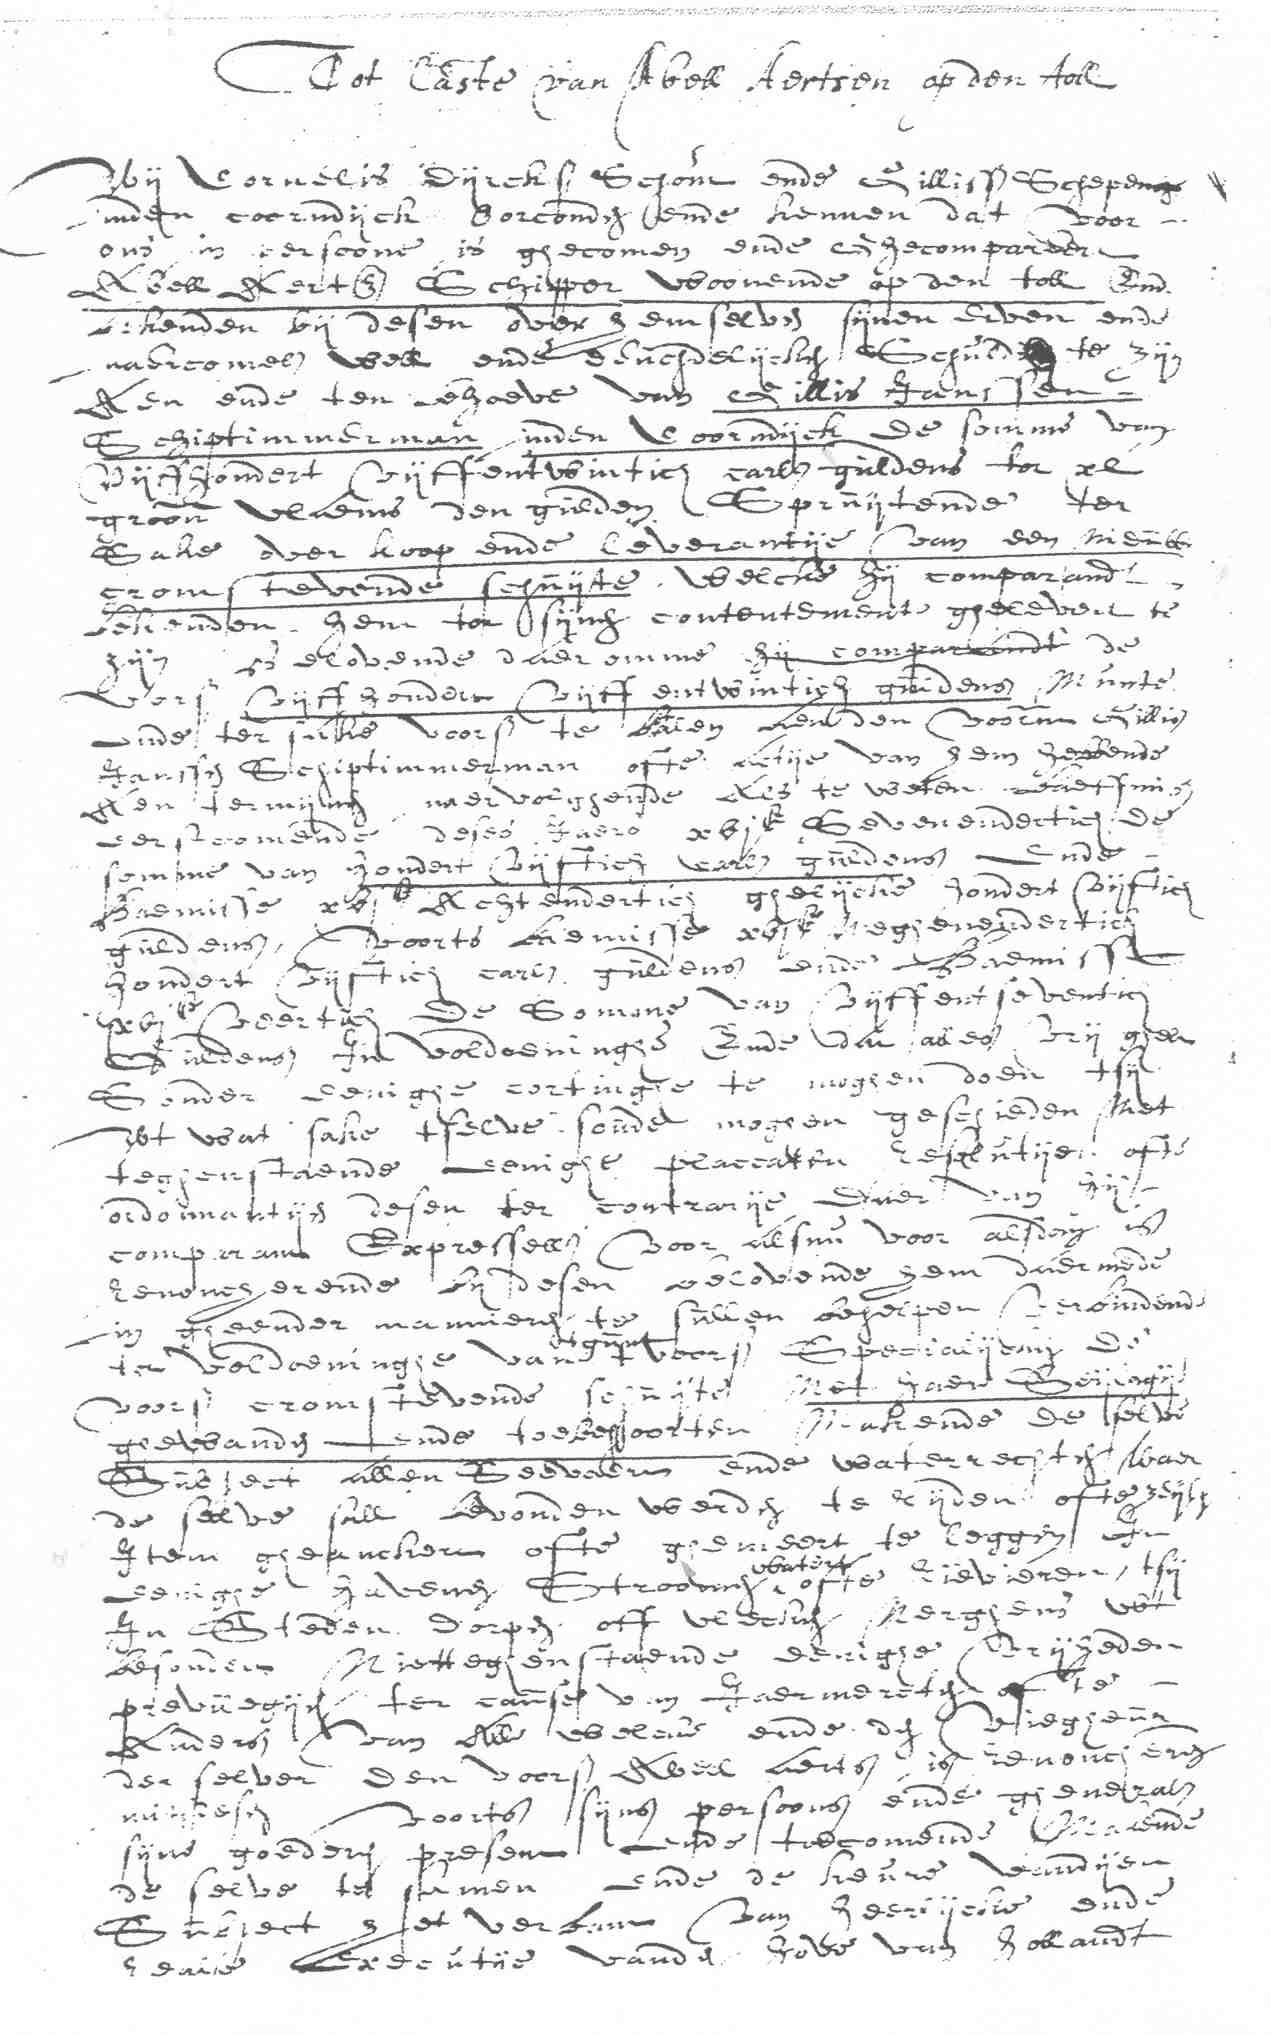 Tot Laste van Abell Aertsen op den toll
Wij Cornelis Dijrcks Schou ende Gilliss Schepens
inden coorndijck oorconden ende kennen dat voor
ons in persoone is ghecomen ende ghecompareert
Abell Aertss Schipper woonende op den toll Ende
bekenden bij desen over hem selven sijnen erven ende
naercomels well ende deuchdelijcken Schuldich te zijn
Aen ende ten behoeve van Gillis Janssen
Schiptimmerman inden Coorndijck de somme van
Vijffhondert vijffentwintich carls guldens tot xl
grooten vlaems den gulden Spruijtende ter
Sake over koop ende leverantije van een nieuwe
cromstevende schuijte welcke hij comparand
bekenden hem tot sijnen contentement ghelevert te
zijn Belovende daeromme hij comparandt de
voors vijffhondert vijffentwintich guldens Munte
ende ter sake voors te betalen den voorn Gillis
Janssen Schiptimmerman ofte actije van hem hebbende
Aen termijnen naervolghende Als te weten Baeffmis
eerstcomende deses Jaers xvjc Sevenendertich de
somme van hondert vijftich carls guldens Ende
Baemisse xvjc Achtendertich ghelijcke hondert vijftich
guldens, Voorts Baemisse xvjc neghenendertich
hondert vijftich carls guldens ende Baemisse
xvjc veertich De Somme van vijffentseventich
Guldens In voldoeninghe Ende dat alles vrij ghelt
Sonder eenighe cortinghe te moghen doen tsij
Wt wat sake tselve soude moghen geschieden Niet
teghenstaende eenighe placcaten resolutijen ofte
ordonnantijen desen ter contrarije Daer van hij
comparant Expresselijck voor alsnu voor alsdan is
renoncherende bij desen belovende hem daermede
in gheender manieren te sullen behelpen Verbindende
ter voldoeninghe van tgunt voors Specialijcken De
voors cromstevende schuijte Met haer Seijlagij
ghewanden Ende toebehoorten Makende de selve
Subject allen Seevaern ende waterrechten Waer
de selve sall bevonden werden te Rijden ofte zeijlen
Item gheanckert ofte ghemeert te leggen In
eenighe havenen Stroomen waters ofte rievieren, tsij
In Steden Dorpen off vlecken Nerghens wt
besondert Niettegenstaende eenighe Vrijheden
previlegijen ter cause van Jaermercten ofte
Anders Van Alle welcke ende de
der selver Den voors Abell Aerts is renoncherende
mits desen Voorts sijns persoons ende gheneralijck
sijne goederen present ende toecomende Makende
de selve te samen ende de keure vandijen
Subject het verbant van heerlijcke ende
reale Executije vanden hove van hollandt